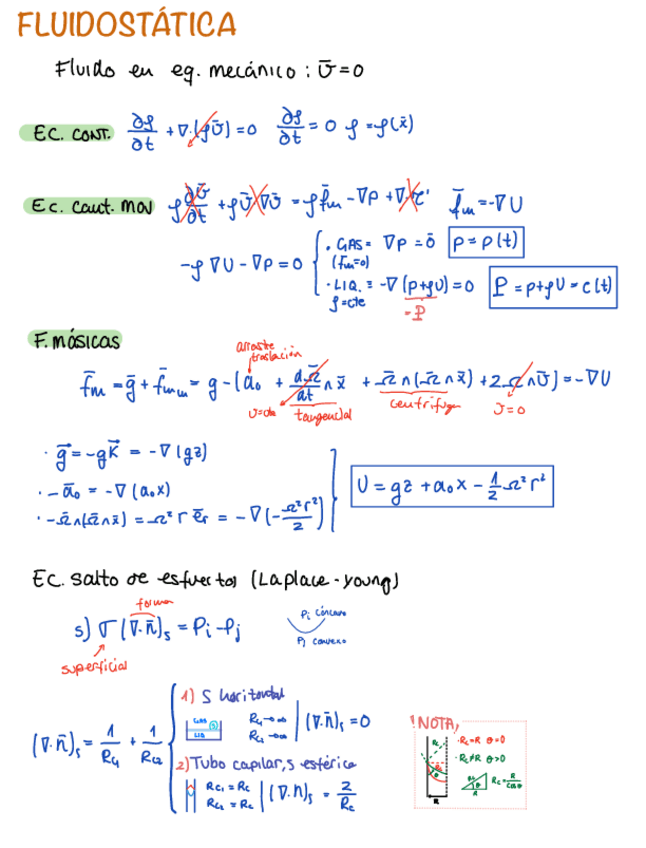 FLUIDOSTÁTICA
Fluido en eq. mecánico : v̄ = 0
EC. CONT. ∂ρ/∂t + ∇·(ρv̄) = 0 ∂ρ/∂t = 0 ρ = ρ(x̄)
Ec. Cant. MOV ρ ∂v̄/∂t + ρv̄·∇v̄ = ρf̄m - ∇p + ∇·τ̄' f̄m = -∇U
-ρ∇U - ∇p = 0
· GAS = ∇p = ō p = p(t)
(f̄m=0)
· LIQ. = -∇(p+ρU) = 0 P = p+ρU = c(t)
ρ=cte = P
F. másicas
arrastre
traslación
f̄m = ḡ + f̄m,in = g - (ā₀ + dΩ̄/dt ∧ x̄ + Ω̄∧(Ω̄∧x̄) + 2Ω̄∧v̄) = -∇U
tangencial centrífuga v=0
· g⃗ = -gk⃗ = -∇(gz)
· -ā₀ = -∇(a₀x)
· -Ω̄∧(Ω̄∧x̄) = Ω² r ēr = -∇(-Ω²r²/2)
U = gz + a₀x - 1/2 Ω²r²
EC. salto de esfuerzos (Laplace-Young)
forma
s) σ(∇·n̄)s = Pi - Pj
superficial
Pi cóncavo
Pj convexo
(∇·n̄)s = 1/Rc1 + 1/Rc2
1) S horizontal
GAS
LIQ
Rc1→∞
Rc2→∞
(∇·n̄)s = 0
2) Tubo capilar, s esférica
Rc1 = Rc
Rc2 = Rc
(∇·n)s = 2/Rc
! NOTA,
· Rc=R θ=0
· Rc≠R θ>0
Rc = R/cosθ
R
R